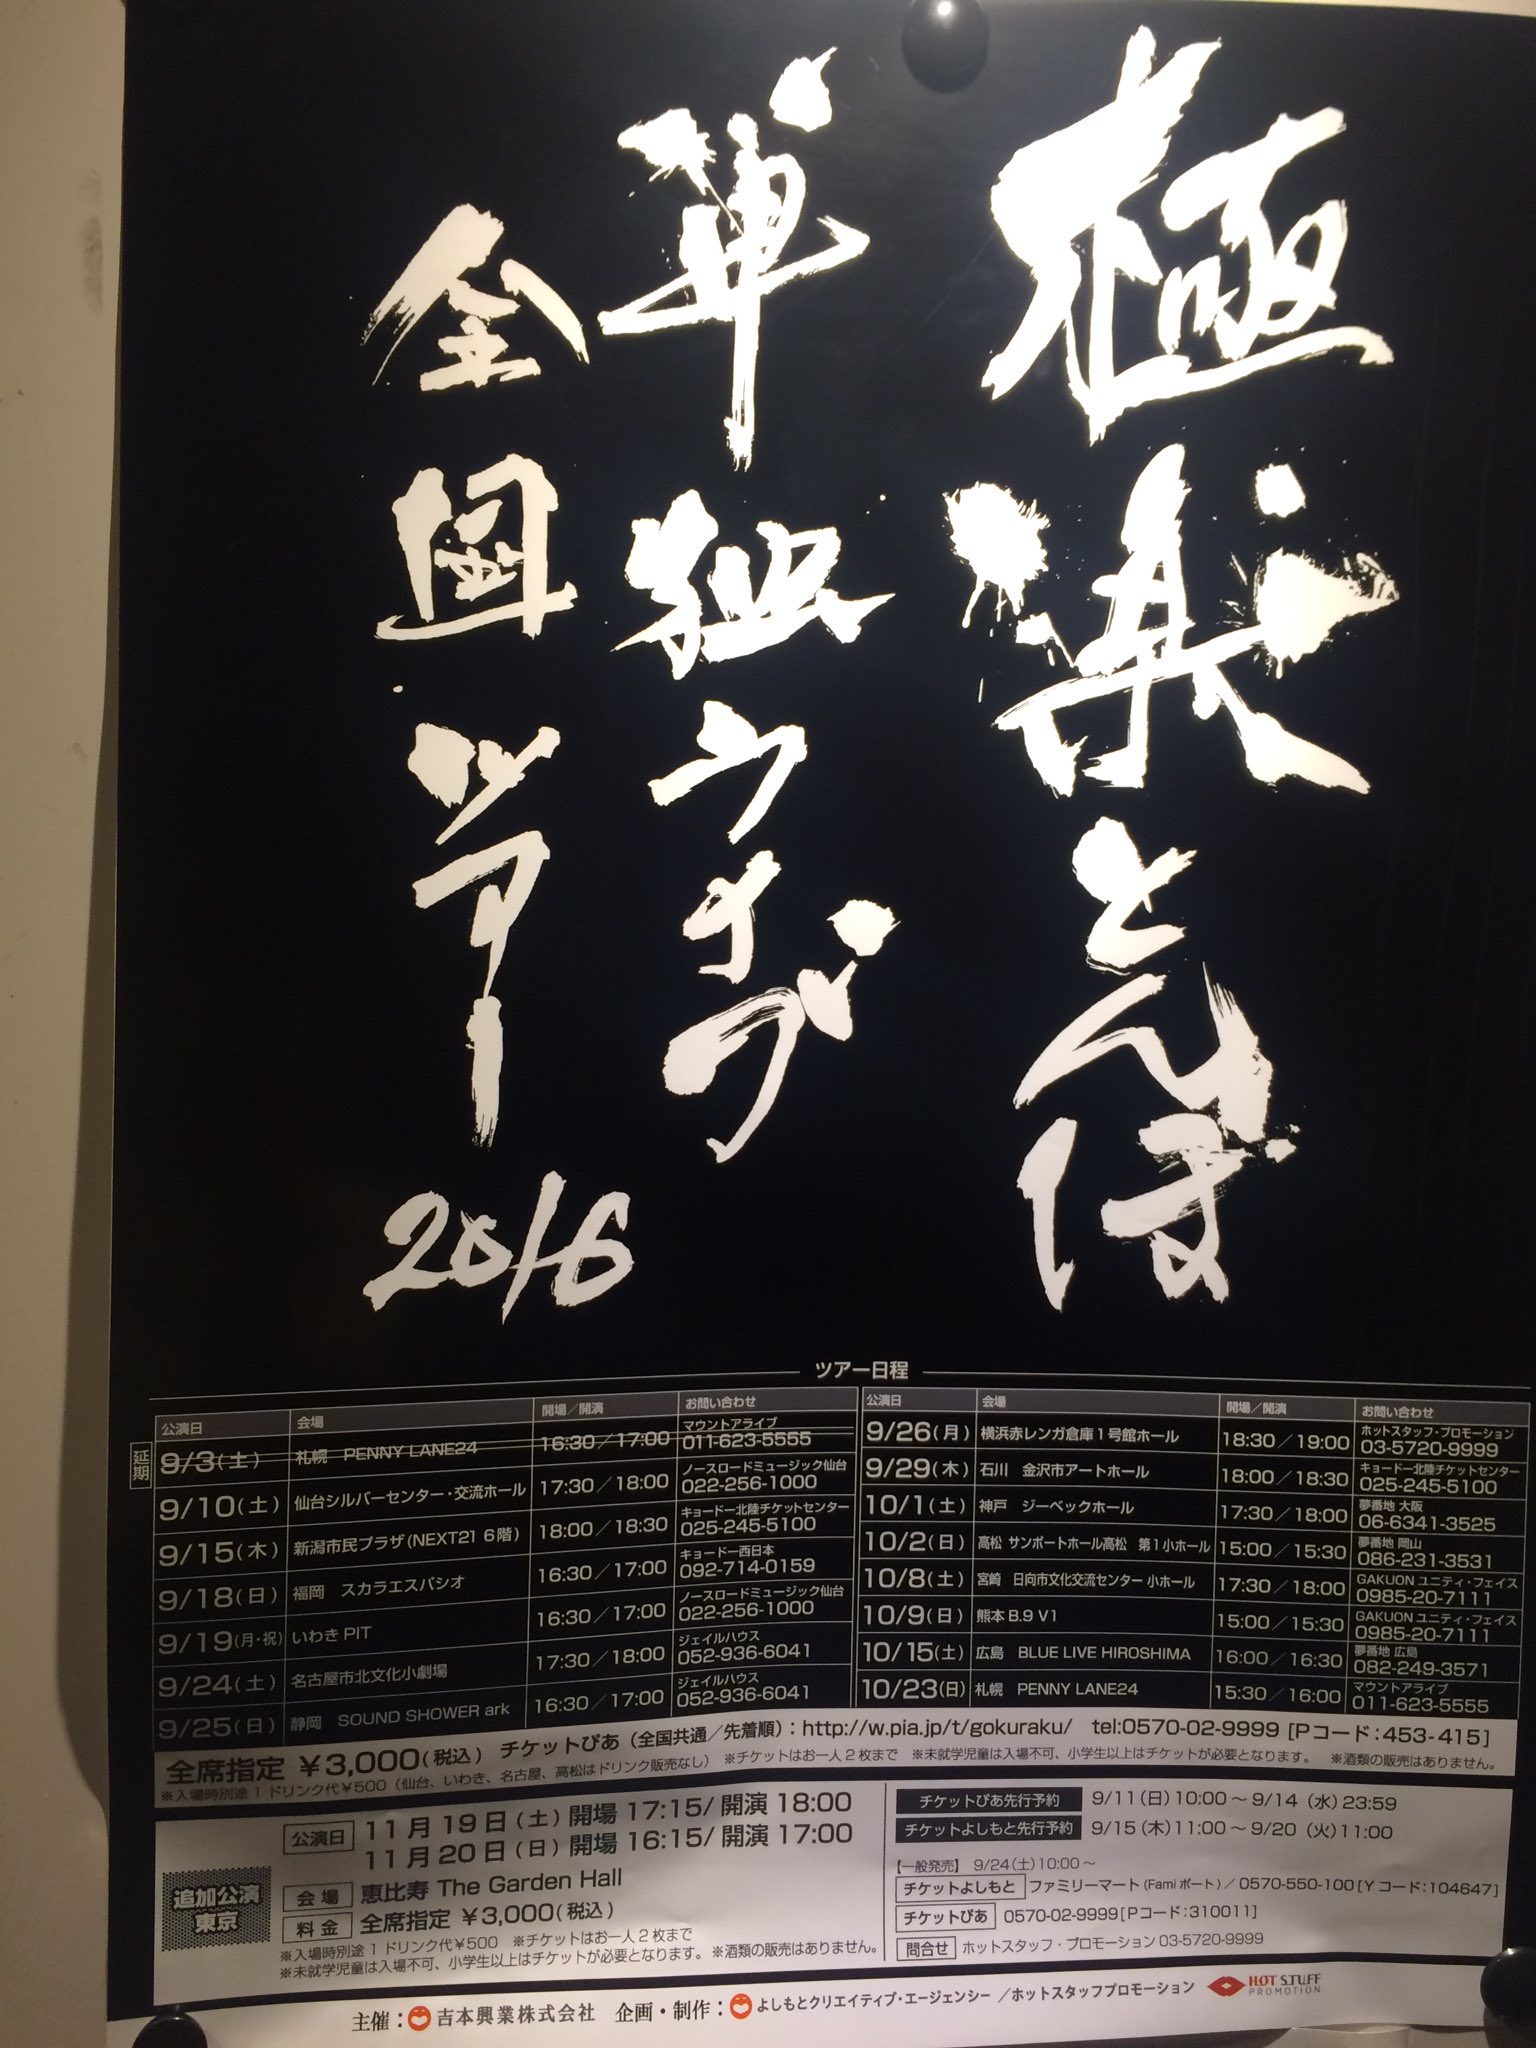 極楽とんぼ
単独ライブ
全国ツアー
2016
ツアー日程
公演日 会場 開場/開演 お問い合わせ
延期 9/3(土) 札幌 PENNY LANE24 16:30/17:00 マウントアライブ 011-623-5555
9/10(土) 仙台シルバーセンター・交流ホール 17:30/18:00 ノースロードミュージック仙台 022-256-1000
9/15(木) 新潟市民プラザ(NEXT21 6階) 18:00/18:30 キョードー北陸チケットセンター 025-245-5100
9/18(日) 福岡 スカラエスパシオ 16:30/17:00 キョードー西日本 092-714-0159
9/19(月・祝) いわきPIT 16:30/17:00 ノースロードミュージック仙台 022-256-1000
9/24(土) 名古屋市北文化小劇場 17:30/18:00 ジェイルハウス 052-936-6041
9/25(日) 静岡 SOUND SHOWER ark 16:30/17:00 ジェイルハウス 052-936-6041
公演日 会場 開場/開演 お問い合わせ
9/26(月) 横浜赤レンガ倉庫1号館ホール 18:30/19:00 ホットスタッフ・プロモーション 03-5720-9999
9/29(木) 石川 金沢市アートホール 18:00/18:30 キョードー北陸チケットセンター 025-245-5100
10/1(土) 神戸 ジーベックホール 17:30/18:00 夢番地 大阪 06-6341-3525
10/2(日) 高松 サンポートホール高松 第1小ホール 15:00/15:30 夢番地 岡山 086-231-3531
10/8(土) 宮崎 日向市文化交流センター 小ホール 17:30/18:00 GAKUON ユニティ・フェイス 0985-20-7111
10/9(日) 熊本 B.9 V1 15:00/15:30 GAKUON ユニティ・フェイス 0985-20-7111
10/15(土) 広島 BLUE LIVE HIROSHIMA 16:00/16:30 夢番地 広島 082-249-3571
10/23(日) 札幌 PENNY LANE24 15:30/16:00 マウントアライブ 011-623-5555
全席指定 ¥3,000(税込) チケットぴあ(全国共通/先着順):http://w.pia.jp/t/gokuraku/ tel:0570-02-9999 [Pコード:453-415]
※入場時別途1ドリンク代¥500(仙台、いわき、名古屋、高松はドリンク販売なし) ※チケットはお一人2枚まで ※未就学児童は入場不可、小学生以上はチケットが必要となります。 ※酒類の販売はありません。
追加公演
東京
公演日 11月19日(土)開場17:15/開演18:00
11月20日(日)開場16:15/開演17:00
会場 恵比寿 The Garden Hall
料金 全席指定 ¥3,000(税込)
※入場時別途1ドリンク代¥500 ※チケットはお一人2枚まで
※未就学児童は入場不可、小学生以上はチケットが必要となります。※酒類の販売はありません。
チケットぴあ先行予約 9/11(日)10:00~9/14(水)23:59
チケットよしもと先行予約 9/15(木)11:00~9/20(火)11:00
【一般発売】 9/24(土)10:00~
チケットよしもと ファミリーマート(Famiポート)/0570-550-100[Yコード:104647]
チケットぴあ 0570-02-9999[Pコード:310011]
問合せ ホットスタッフ・プロモーション 03-5720-9999
主催:吉本興業株式会社 企画・制作:よしもとクリエイティブ・エージェンシー/ホットスタッフプロモーション HOT STUFF PROMOTION